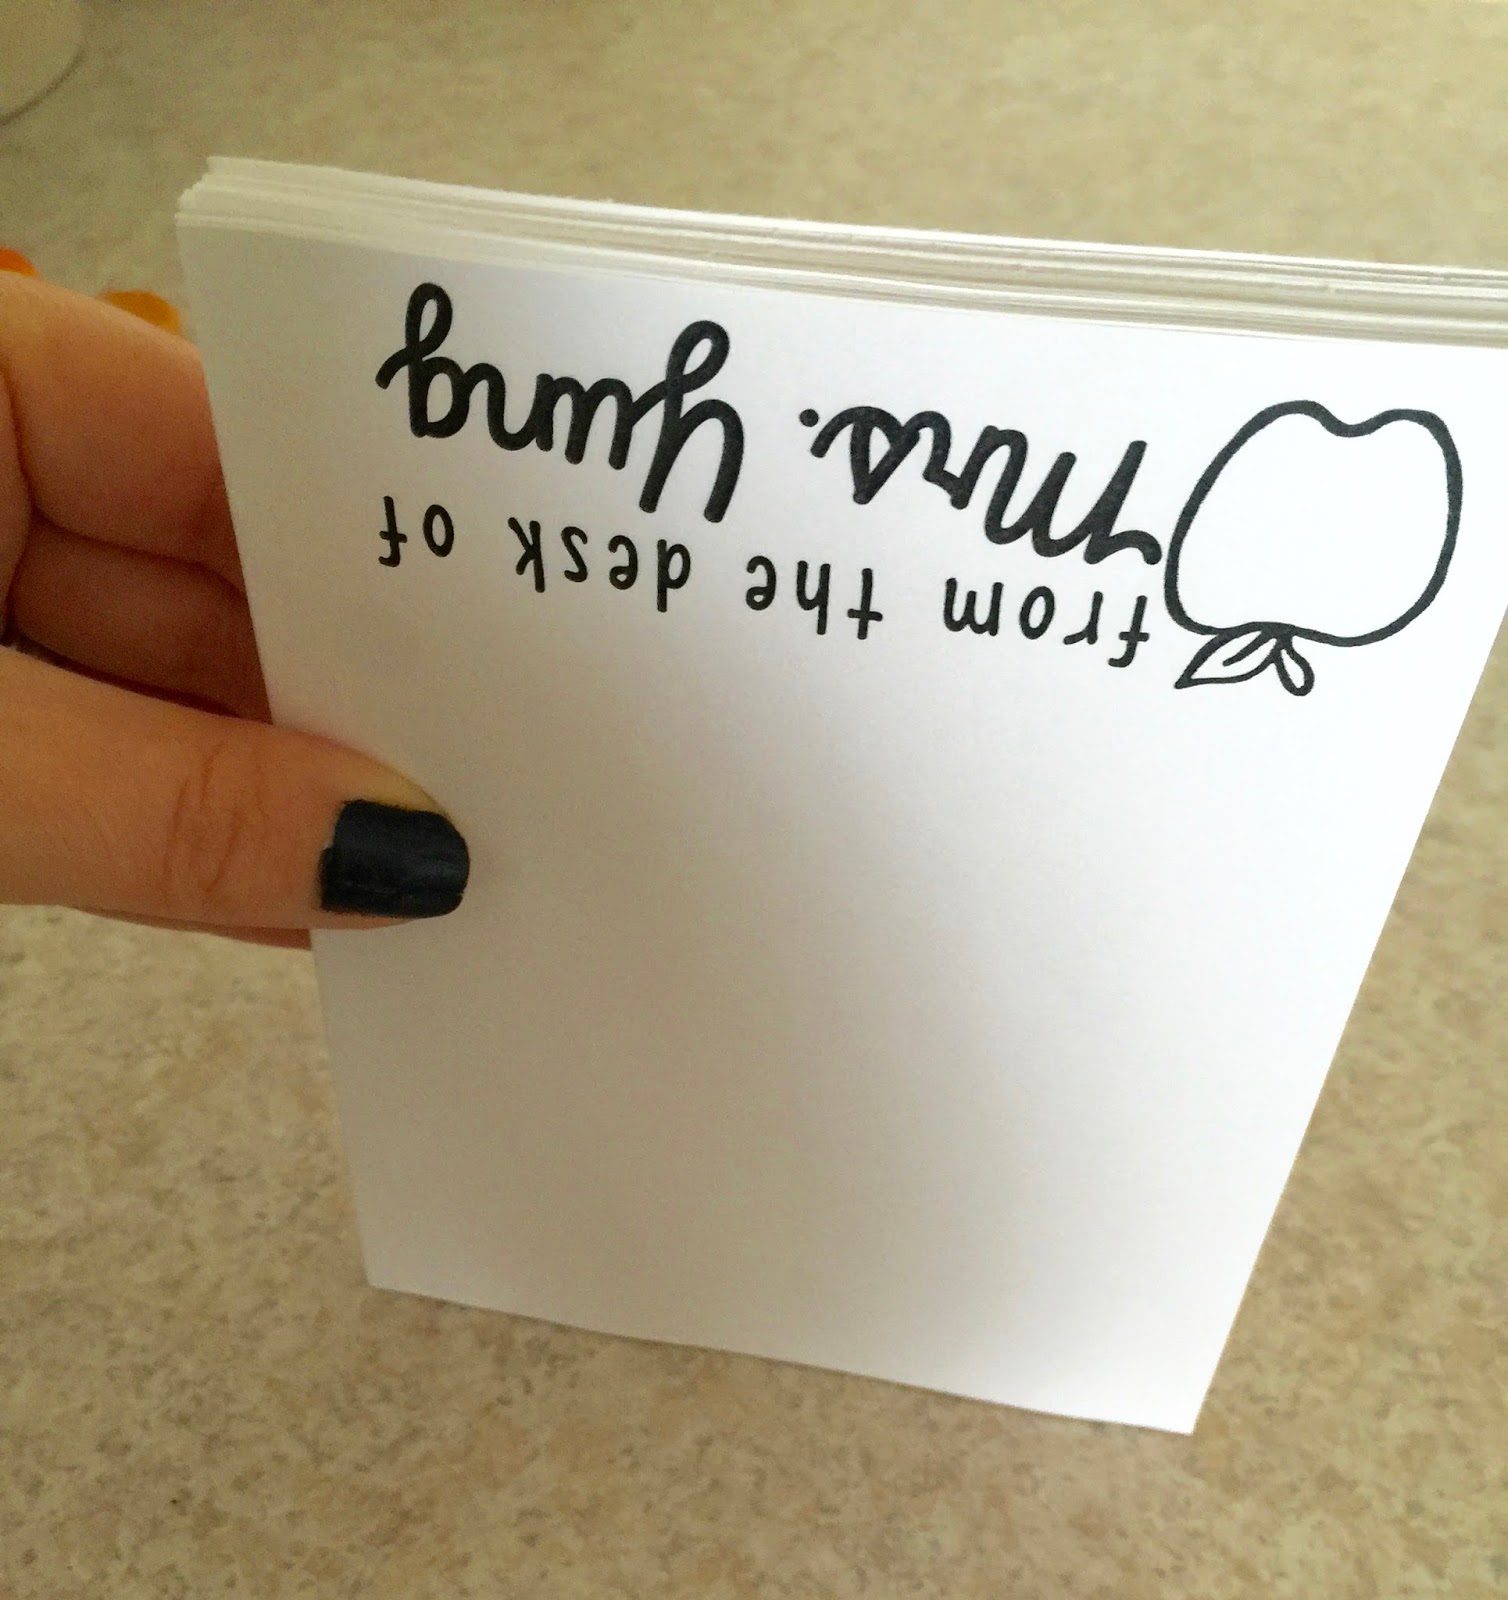 from the desk of
Mrs. Yung